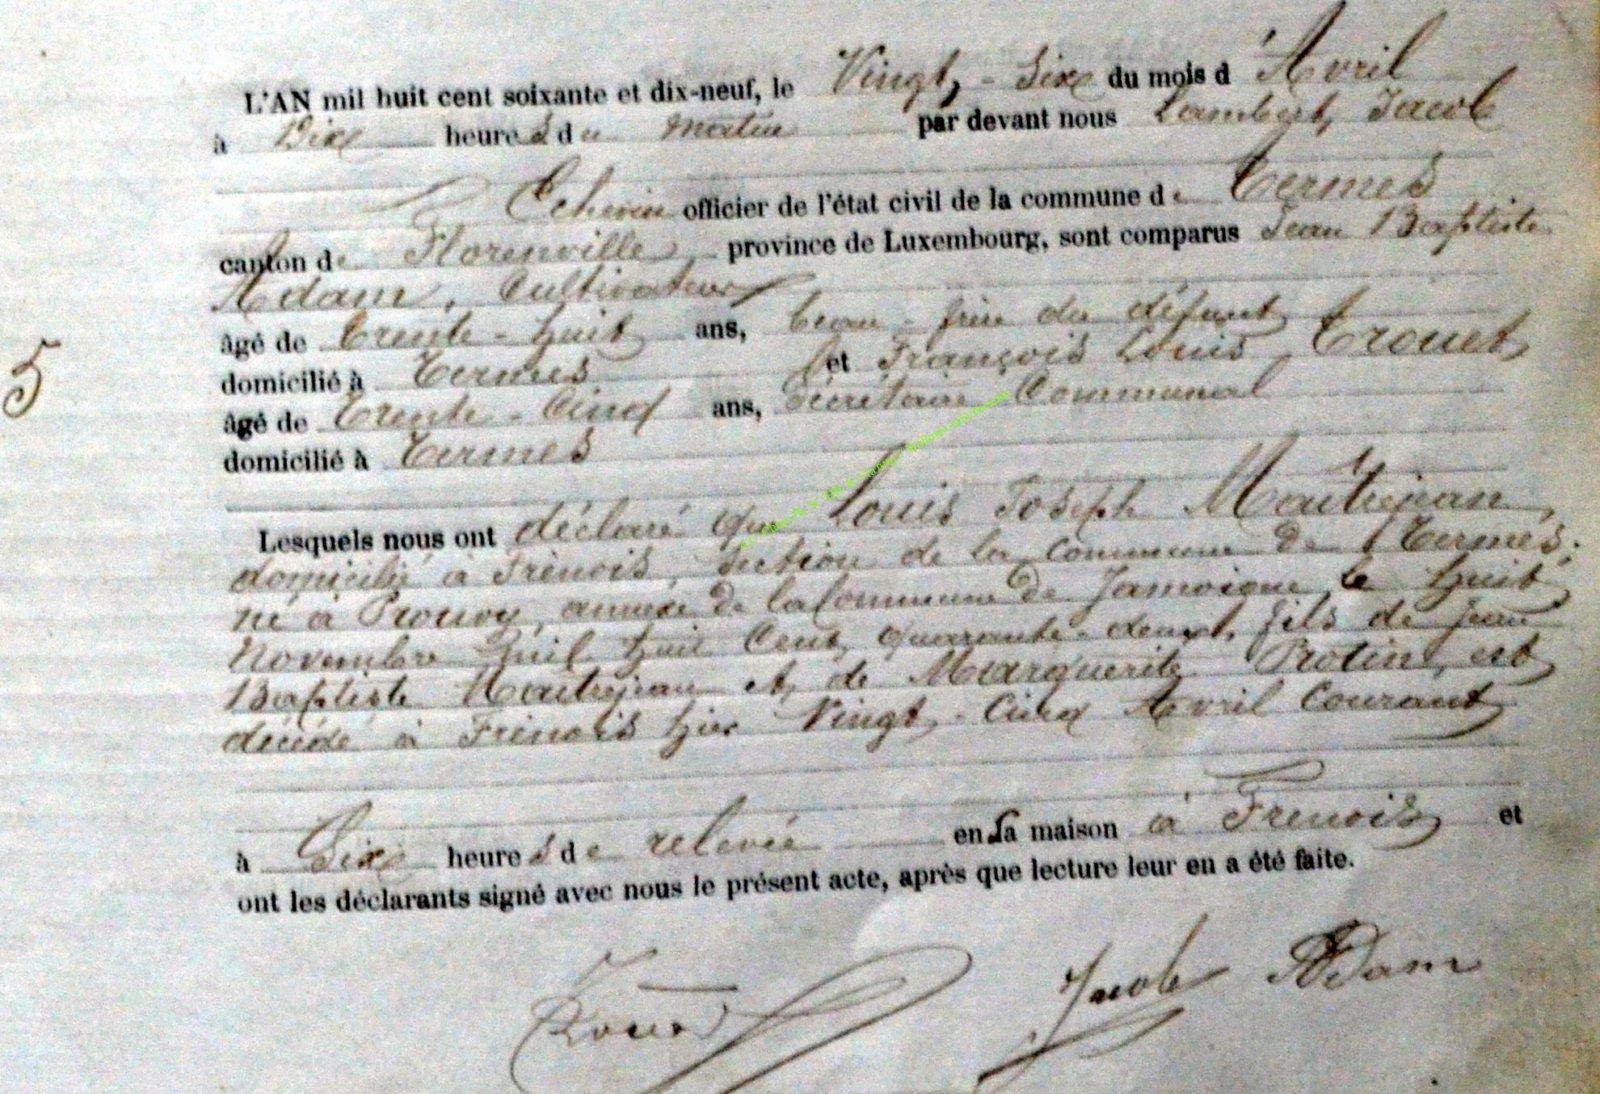 L'AN mil huit cent soixante et dix-neuf, le Vingt-Six du mois d'Avril
à Dix heures du matin par devant nous Lambert Jacob
Echevin officier de l'état civil de la commune de Termes
canton de Florenville province de Luxembourg, sont comparus Jean Baptiste
Adam, Cultivateur
âgé de trente-huit ans, beau-frère du défunt
domicilié à Termes et François Louis Trouet
5
âgé de trente-Cinq ans, Secrétaire Communal
domicilié à Termes
Lesquels nous ont déclaré que Louis Joseph Maitrejean,
domicilié à Frenois, Section de la Commune de Termes;
né à Prouvy, annexe de la Commune de Jamoigne le huit
Novembre mil huit Cent quarante-deux, fils de Jean
Baptiste Maitrejean et de Marguerite Protin, est
décédé à Frenois hier Vingt-Cinq Avril Courant
à Six heures de relevée en sa maison à Frenois et
ont les déclarants signé avec nous le présent acte, après que lecture leur en a été faite.
Trouet Jacob Adam